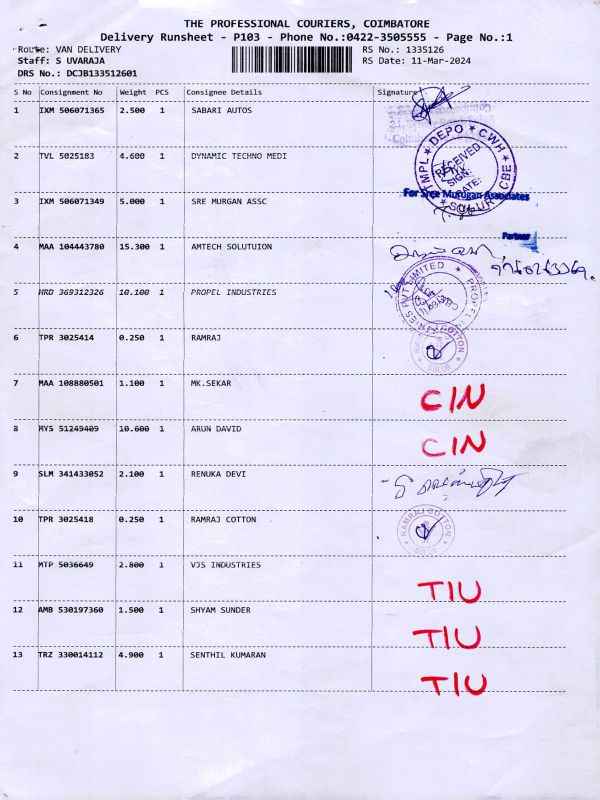 THE PROFESSIONAL COURIERS, COIMBATORE
Delivery Runsheet - P103 - Phone No.:0422-3505555 - Page No.:1
Route: VAN DELIVERY RS No.: 1335126
Staff: S UVARAJA RS Date: 11-Mar-2024
DRS No.: DCJB133512601
S No Consignment No Weight PCS Consignee Details Signature
1 IXM 506071365 2.500 1 SABARI AUTOS
2 TVL 5025183 4.600 1 DYNAMIC TECHNO MEDI
TMPL ★ DEPO ★ CWH ★ CBE ★ SULUR
RECEIVED
SIGN:
DATE:
3 IXM 506071349 5.000 1 SRE MURGAN ASSC
For Sree Murugan Associates
Partner
4 MAA 104443780 15.300 1 AMTECH SOLUTUION
5 HRD 369312326 10.100 1 PROPEL INDUSTRIES
6 TPR 3025414 0.250 1 RAMRAJ
COTTON
SULUR
7 MAA 108880501 1.100 1 MK.SEKAR
CIN
8 MYS 51249409 10.600 1 ARUN DAVID
CIN
9 SLM 341433052 2.100 1 RENUKA DEVI
10 TPR 3025418 0.250 1 RAMRAJ COTTON
RAMRAJ COTTON
SULUR
11 MTP 5036649 2.800 1 VJS INDUSTRIES
TIU
12 AMB 530197360 1.500 1 SHYAM SUNDER
TIU
13 TRZ 330014112 4.900 1 SENTHIL KUMARAN
TIU